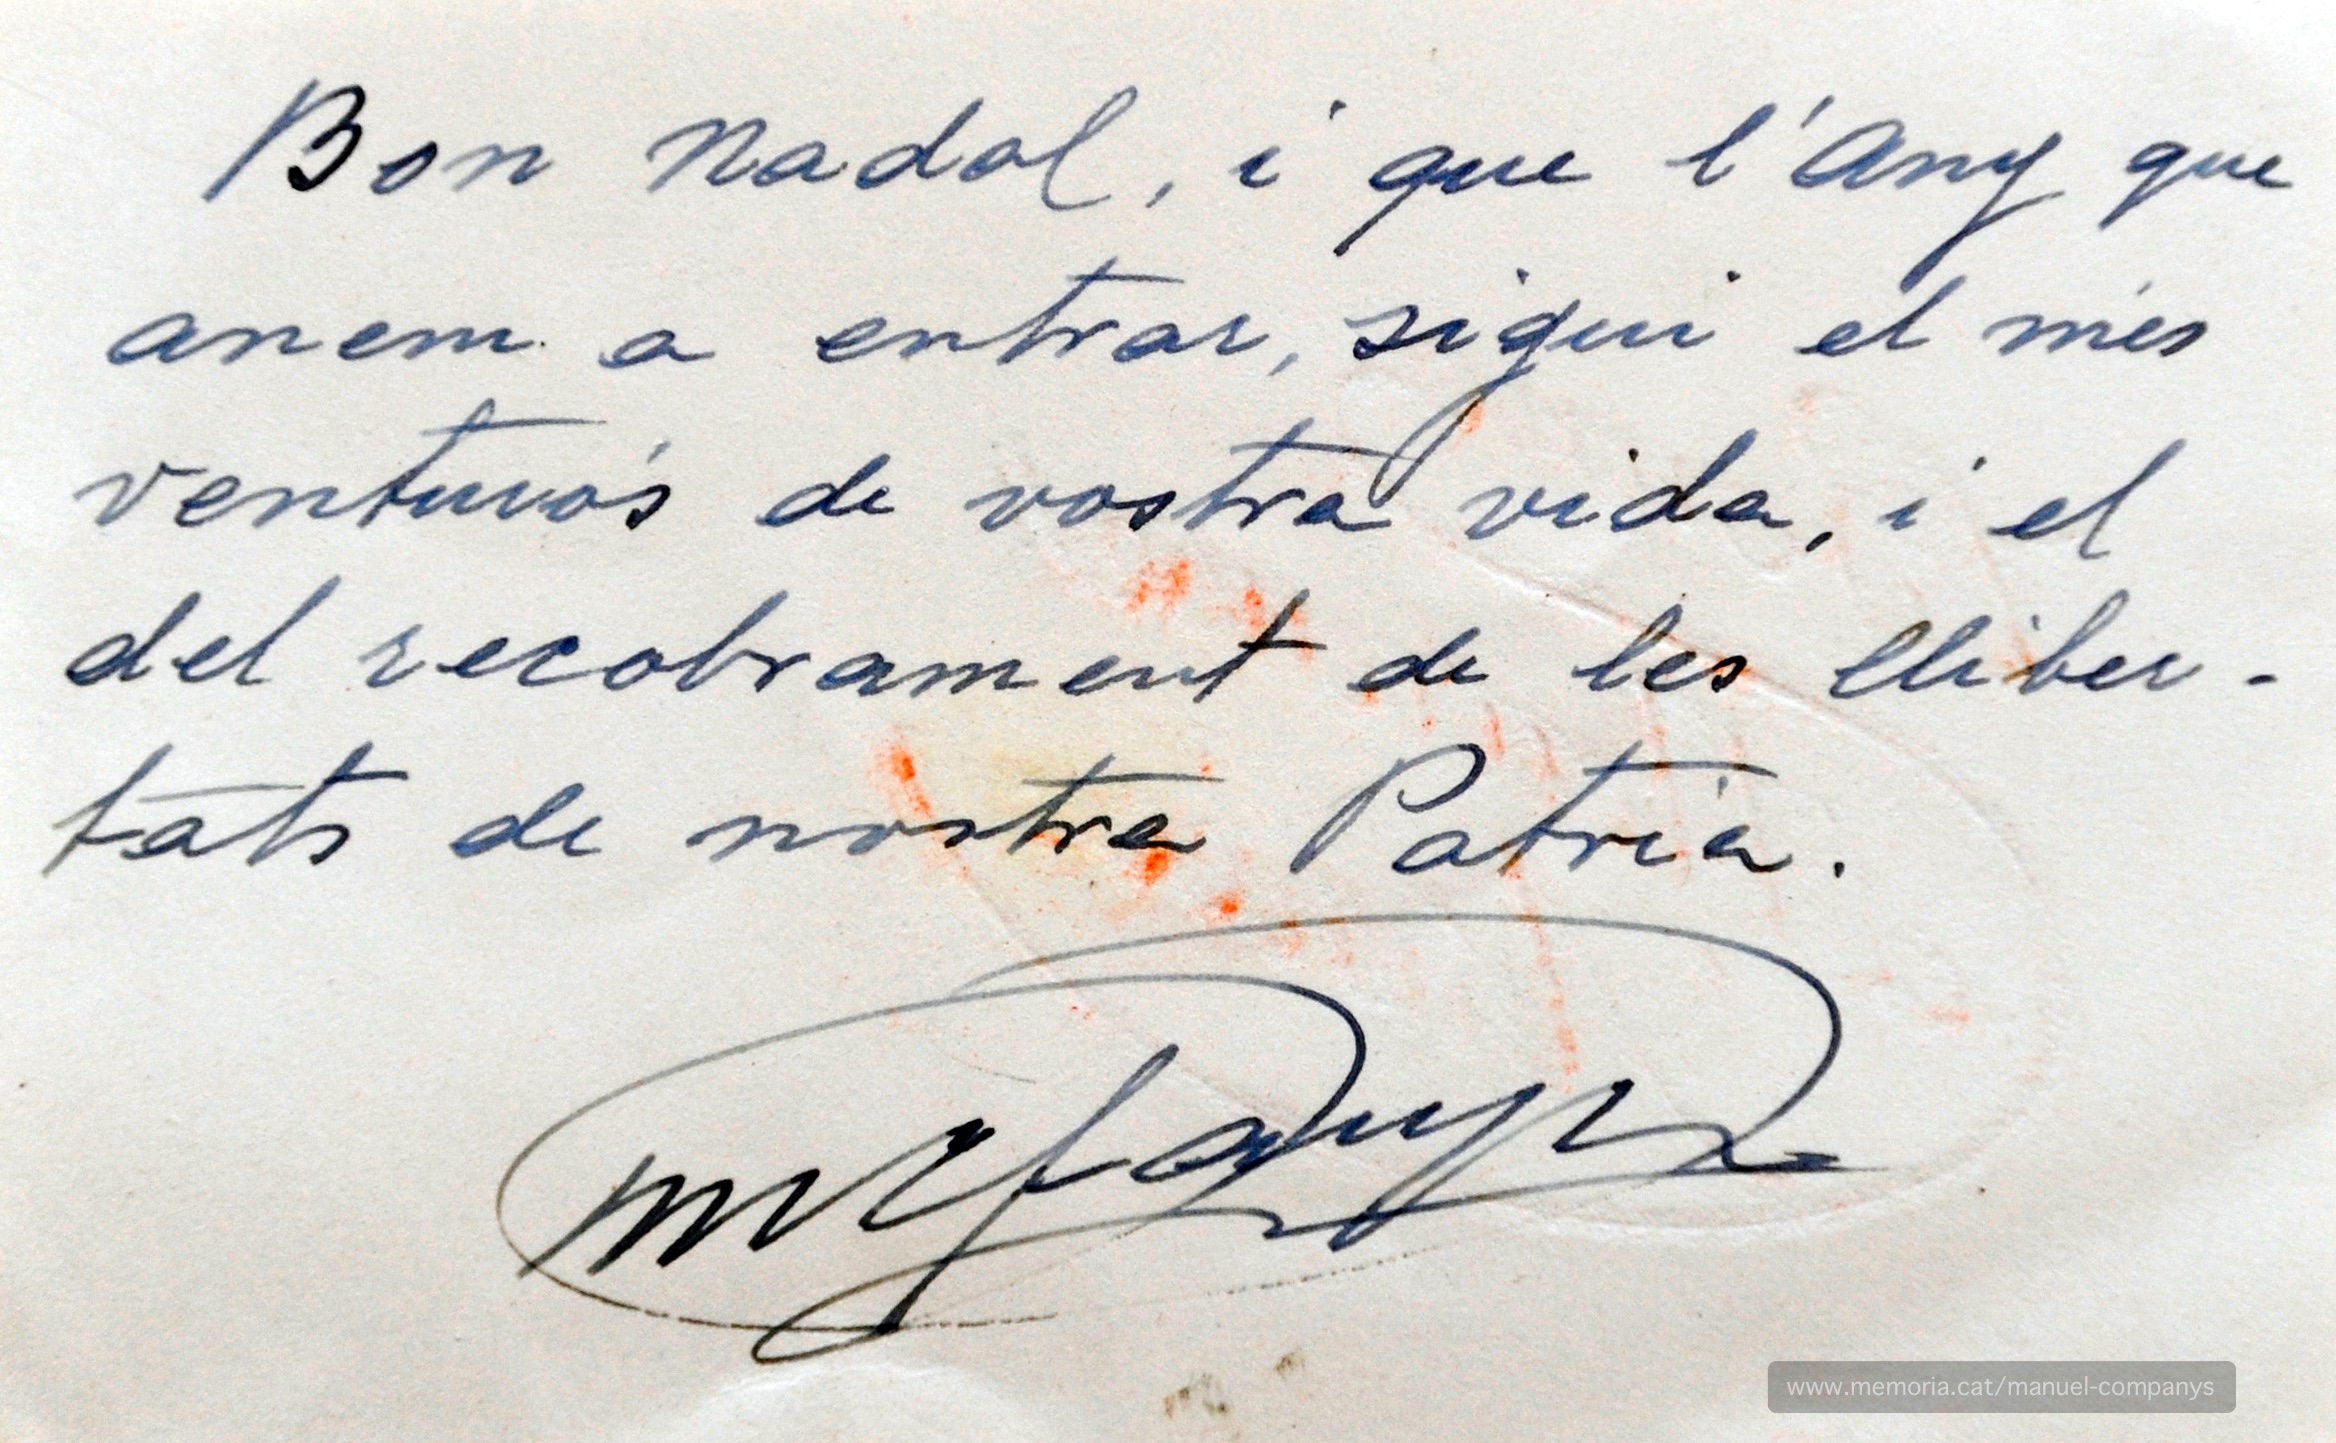 Bon Nadal, i que l'Any que
anem a entrar, sigui el més
venturós de vostra vida, i el
del recobrament de les lliber-
tats de nostra Patria.
www.memoria.cat/manuel-companys